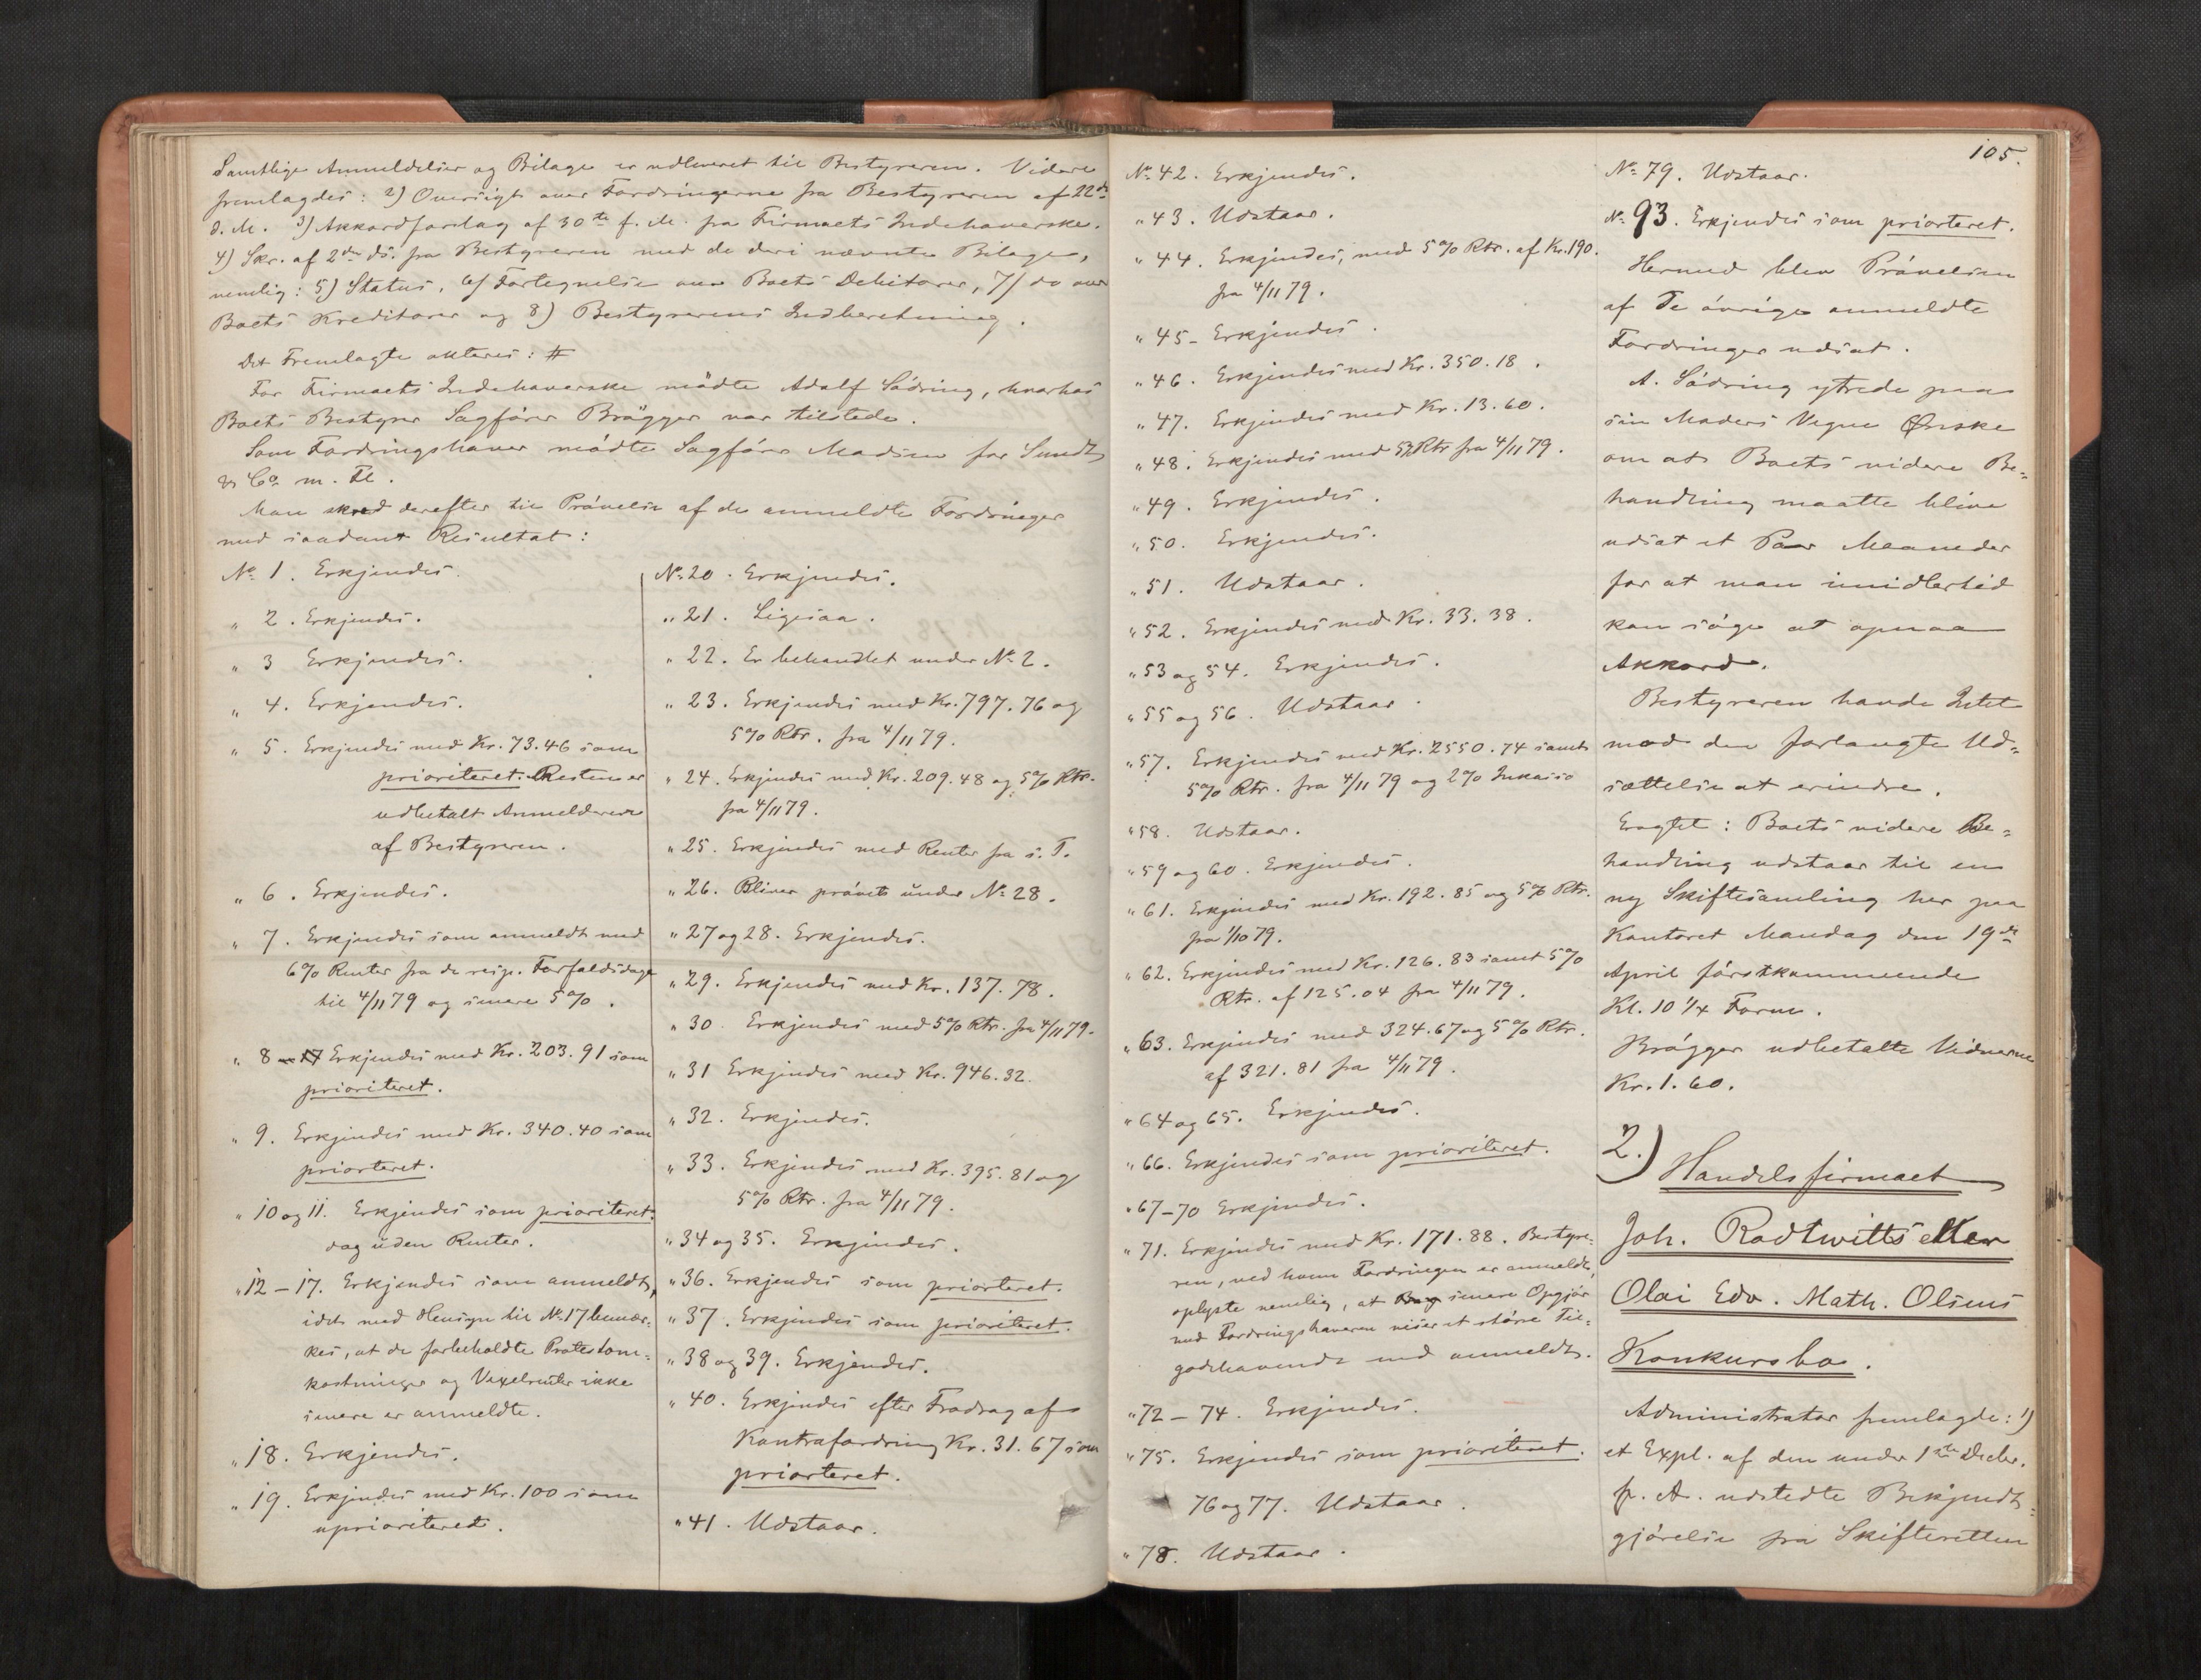 Samtlige Anmeldelser og Bilage er udleveret til Bestyreren. Videre
fremlagdes: 2) Oversigt over Fordringerne fra Bestyreren af 22de
d. M. 3) Akkordforslag af 30te f. M. fra Firmaets Indehaverske.
4) Skr. af 2den ds. fra Bestyreren med de deri nævnte Bilage,
nemlig: 5) Status, 6) Fortegnelse over Boets Debitorer, 7) do over
Boets Kreditorer og 8) Bestyrerens Indberetning.
Det Fremlagte akteres: #
For Firmaets Indehaverske mødte Adolf Södring, hvorhos
Boets Bestyrer Sagfører Brøgger var tilstede.
Som Fordringshaver mødte Sagfører Madsen for Sundt
& Co m. Fl.
Man skred derefter til Prøvelse af de anmeldte Fordringer
med saadant Resultat:
No 1. Erkjendes.
" 2. Erkjendes.
" 3 Erkjendes.
" 4. Erkjendes.
" 5. Erkjendes med Kr. 73.46 som
prioriteret. Resten er
udbetalt Anmelderen
af Bestyreren.
" 6. Erkjendes.
" 7. Erkjendes som anmeldt med
6% Renter fra de resp. Forfaldsdage
til 4/11 79 og senere 5%.
" 8 Erkjendes med Kr. 203.91 som
prioriteret.
" 9. Erkjendes med Kr. 340.40 som
priorteret.
" 10 og 11. Erkjendes som prioriteret.
dog uden Renter.
" 12–17. Erkjendes som anmeldt,
idet med Hensyn til No 17 bemær-
kes, at de forbeholdte Protestom-
kostninger og Vexelrenter ikke
senere er anmeldte.
" 18. Erkjendes.
" 19. Erkjendes med Kr. 100 som
uprioriteret.
No 20. Erkjendes.
" 21. Ligesaa.
" 22. Er behandlet under No 2.
" 23. Erkjendes med Kr. 797.76 og
5% Rtr. fra 4/11 79.
" 24. Erkjendes med Kr. 209.48 og 5% Rtr.
fra 4/11 79.
" 25. Erkjendes med Renter fra s. T.
" 26. Bliver prøvet under No 28.
" 27 og 28. Erkjendes.
" 29. Erkjendes med Kr. 137.78.
" 30. Erkjendes med 5% Rtr. fra 4/11 79.
" 31 Erkjendes med Kr. 946.32.
" 32. Erkjendes.
" 33. Erkjendes med Kr. 395.81 og
5% Rtr. fra 4/11 79.
" 34 og 35. Erkjendes.
" 36. Erkjendes som priorteret.
" 37. Erkjendes som prioriteret.
" 38 og 39. Erkjendes.
" 40. Erkjendes efter Fradrag af
Kontrafordring Kr. 31.67 som
priorteret.
" 41. Udstaar.
105.
No 42. Erkjendes.
" 43. Udstaar.
" 44. Erkjendes, med 5% Rtr. af Kr. 190.
fra 4/11 79.
" 45 – Erkjendes.
" 46. Erkjendes med Kr. 350.18.
" 47. Erkjendes med Kr. 13.60.
" 48. Erkjendes med 5% Rtr fra 4/11 79.
" 49. Erkjendes.
" 50. Erkjendes.
" 51. Udstaar.
" 52. Erkjendes med Kr. 33.38.
" 53 og 54. Erkjendes.
" 55 og 56. Udstaar.
" 57. Erkjendes med Kr. 2550.74 samt
5% Rtr. fra 4/11 79 og 2% Inkasso
" 58. Udstaar.
" 59 og 60. Erkjendes.
" 61. Erkjendes med Kr. 192.85 og 5% Rtr.
fra 1/10 79.
" 62. Erkjendes med Kr. 126.83 samt 5%
Rtr. af 125.04 fra 4/11 79.
" 63. Erkjendes med 324.67 og 5% Rtr.
af 321.81 fra 4/11 79.
" 64 og 65. Erkjendes.
" 66. Erkjendes som prioriteret.
" 67–70 Erkjendes.
" 71. Erkjendes med Kr. 171.88. Bestyre-
ren, ved hvem Fordringen er anmeldt,
oplyste nemlig, at senere Opgjør
med Fordringshaveren viser et større Til-
godehavende end anmeldt.
" 72–74. Erkjendes.
" 75. Erkjendes som prioriteret.
76 og 77. Udstaar.
" 78. Udstaar.
No 79. Udstaar.
No 93. Erkjendes som priorteret.
Hermed blev Prøvelsen
af de øvrige anmeldte
Fordringer udsat.
A. Södring ytrede paa
sin Moders Vegne Ønske
om at Boets videre Be-
handling maatte blive
udsat et Par Maaneder
for at man imidlertid
kan søge at opnaa
Akkord.
Bestyreren havde Intet
mod den forlangte Ud-
sættelse at erindre.
Eragtet: Boets videre Be-
handling udstaar til en
ny Skiftesamling her paa
Kontoret Mandag den 19de
April førstkommende
Kl. 10 1/4 Form.
Brøgger udbetalte Vidnerne
Kr. 1.60.
2.) Handelsfirmaet
Joh. Rodtwitts eller
Olai Edv. Math. Olsens
Konkursbo.
Administrator fremlagde: 1)
et Expl. af den under 1ste Decbr.
f. A. udstedte Bekjendt-
gjørelse fra Skifteretten